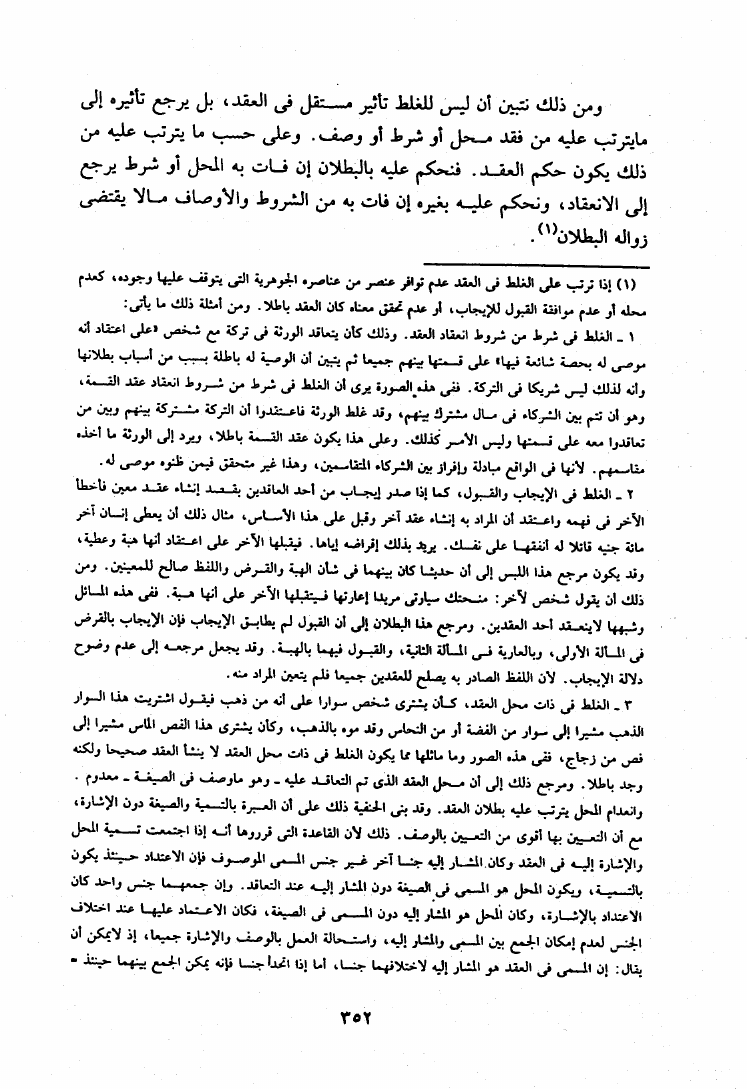 ومن ذلك نتبين أن ليس للغلط تأثير مستقل فى العقد، بل يرجع تأثيره إلى
مايترتب عليه من فقد محل أو شرط أو وصف. وعلى حسب ما يترتب عليه من
ذلك يكون حكم العقد. فنحكم عليه بالبطلان إن فات به المحل أو شرط يرجع
إلى الانعقاد، ونحكم عليه بغيره إن فات به من الشروط والأوصاف مالا يقتضى
زواله البطلان(١).
(١) إذا ترتب على الغلط فى العقد عدم توافر عنصر من عناصره الجوهرية التى يتوقف عليها وجوده، كعدم
محله أو عدم موافقة القبول للإيجاب، أو عدم تحقق معناه كان العقد باطلا. ومن أمثلة ذلك ما يأتى:
١ ـ الغلط فى شرط من شروط انعقاد العقد. وذلك كأن يتعاقد الورثة فى تركة مع شخص «على اعتقاد أنه
موصى له بحصة شائعة فيها» على قسمتها بينهم جميعا ثم يتبين أن الوصية له باطلة بسبب من أسباب بطلانها
وأنه لذلك ليس شريكا فى التركة. ففى هذه الصورة يرى أن الغلط فى شرط من شروط انعقاد عقد القسمة،
وهو أن تتم بين الشركاء فى مال مشترك بينهم، وقد غلط الورثة فاعتقدوا أن التركة مشتركة بينهم وبين من
تعاقدوا معه على قسمتها وليس الأمر كذلك. وعلى هذا يكون عقد القسمة باطلا، ويرد إلى الورثة ما أخذه
مقاسمهم. لأنها فى الواقع مبادلة وإفراز بين الشركاء المتقاسمين، وهذا غير متحقق فيمن ظنوه موصى له.
٢ ـ الغلط فى الإيجاب والقبول، كما إذا صدر إيجاب من أحد العاقدين بقصد إنشاء عقد معين فأخطأ
الآخر فى فهمه واعتقد أن المراد به إنشاء عقد آخر وقبل على هذا الأساس، مثال ذلك أن يعطى إنسان آخر
مائة جنيه قائلا له أنفقها على نفسك. يريد بذلك إقراضه إياها. فيقبلها الآخر على اعتقاد أنها هبة وعطية،
وقد يكون مرجع هذا اللبس إلى أن حديثا كان بينهما فى شأن الهبة والقرض واللفظ صالح للمعينين. ومن
ذلك أن يقول شخص لآخر: منحتك سيارتى مريدا إعارتها فيتقبلها الآخر على أنها هبة. ففى هذه المسائل
وشبهها لاينعقد أحد العقدين. ومرجع هذا البطلان إلى أن القبول لم يطابق الإيجاب فإن الإيجاب بالقرض
فى المسألة الأولى، وبالعارية فى المسألة الثانية، والقبول فيهما بالهبة. وقد يجعل مرجعه إلى عدم وضوح
دلالة الإيجاب. لأن اللفظ الصادر به يصلح للعقدين جميعا فلم يتعين المراد منه.
٣ ـ الغلط فى ذات محل العقد، كأن يشترى شخص سوارا على أنه من ذهب فيقول اشتريت هذا السوار
الذهب مشيرا إلى سوار من الفضة أو من النحاس وقد موه بالذهب، وكأن يشترى هذا الفص الماس مشيرا إلى
فص من زجاج، ففى هذه الصور وما ماثلها مما يكون الغلط فى ذات محل العقد لا ينشأ العقد صحيحا ولكنه
وجد باطلا. ومرجع ذلك إلى أن محل العقد الذى تم التعاقد عليه ـ وهو ماوصف فى الصيغة ـ معدوم .
وانعدام المحل يترتب عليه بطلان العقد. وقد بنى الحنفية ذلك على أن العبرة بالتسمية والصيغة دون الإشارة،
مع أن التعيين بها أقوى من التعيين بالوصف. ذلك لأن القاعدة التى قرروها أنه إذا اجتمعت تسمية المحل
والإشارة إليه فى العقد وكان المشار إليه جنسا آخر غير جنس المسمى الموصوف فإن الاعتداد حينئذ يكون
بالتسمية، ويكون المحل هو المسمى فى الصيغة دون المشار إليه عند التعاقد. وإن جمعهما جنس واحد كان
الاعتداد بالإشارة، وكان المحل هو المشار إليه دون المسمى فى الصيغة، فكان الاعتماد عليها عند اختلاف
الجنس لعدم إمكان الجمع بين المسمى والمشار إليه، واستحالة العمل بالوصف والإشارة جميعا، إذ لايمكن أن
يقال: إن المسمى فى العقد هو المشار إليه لاختلافهما جنسا، أما إذا اتحدا جنسا فإنه يمكن الجمع بينهما حينئذ =
٣٥٢